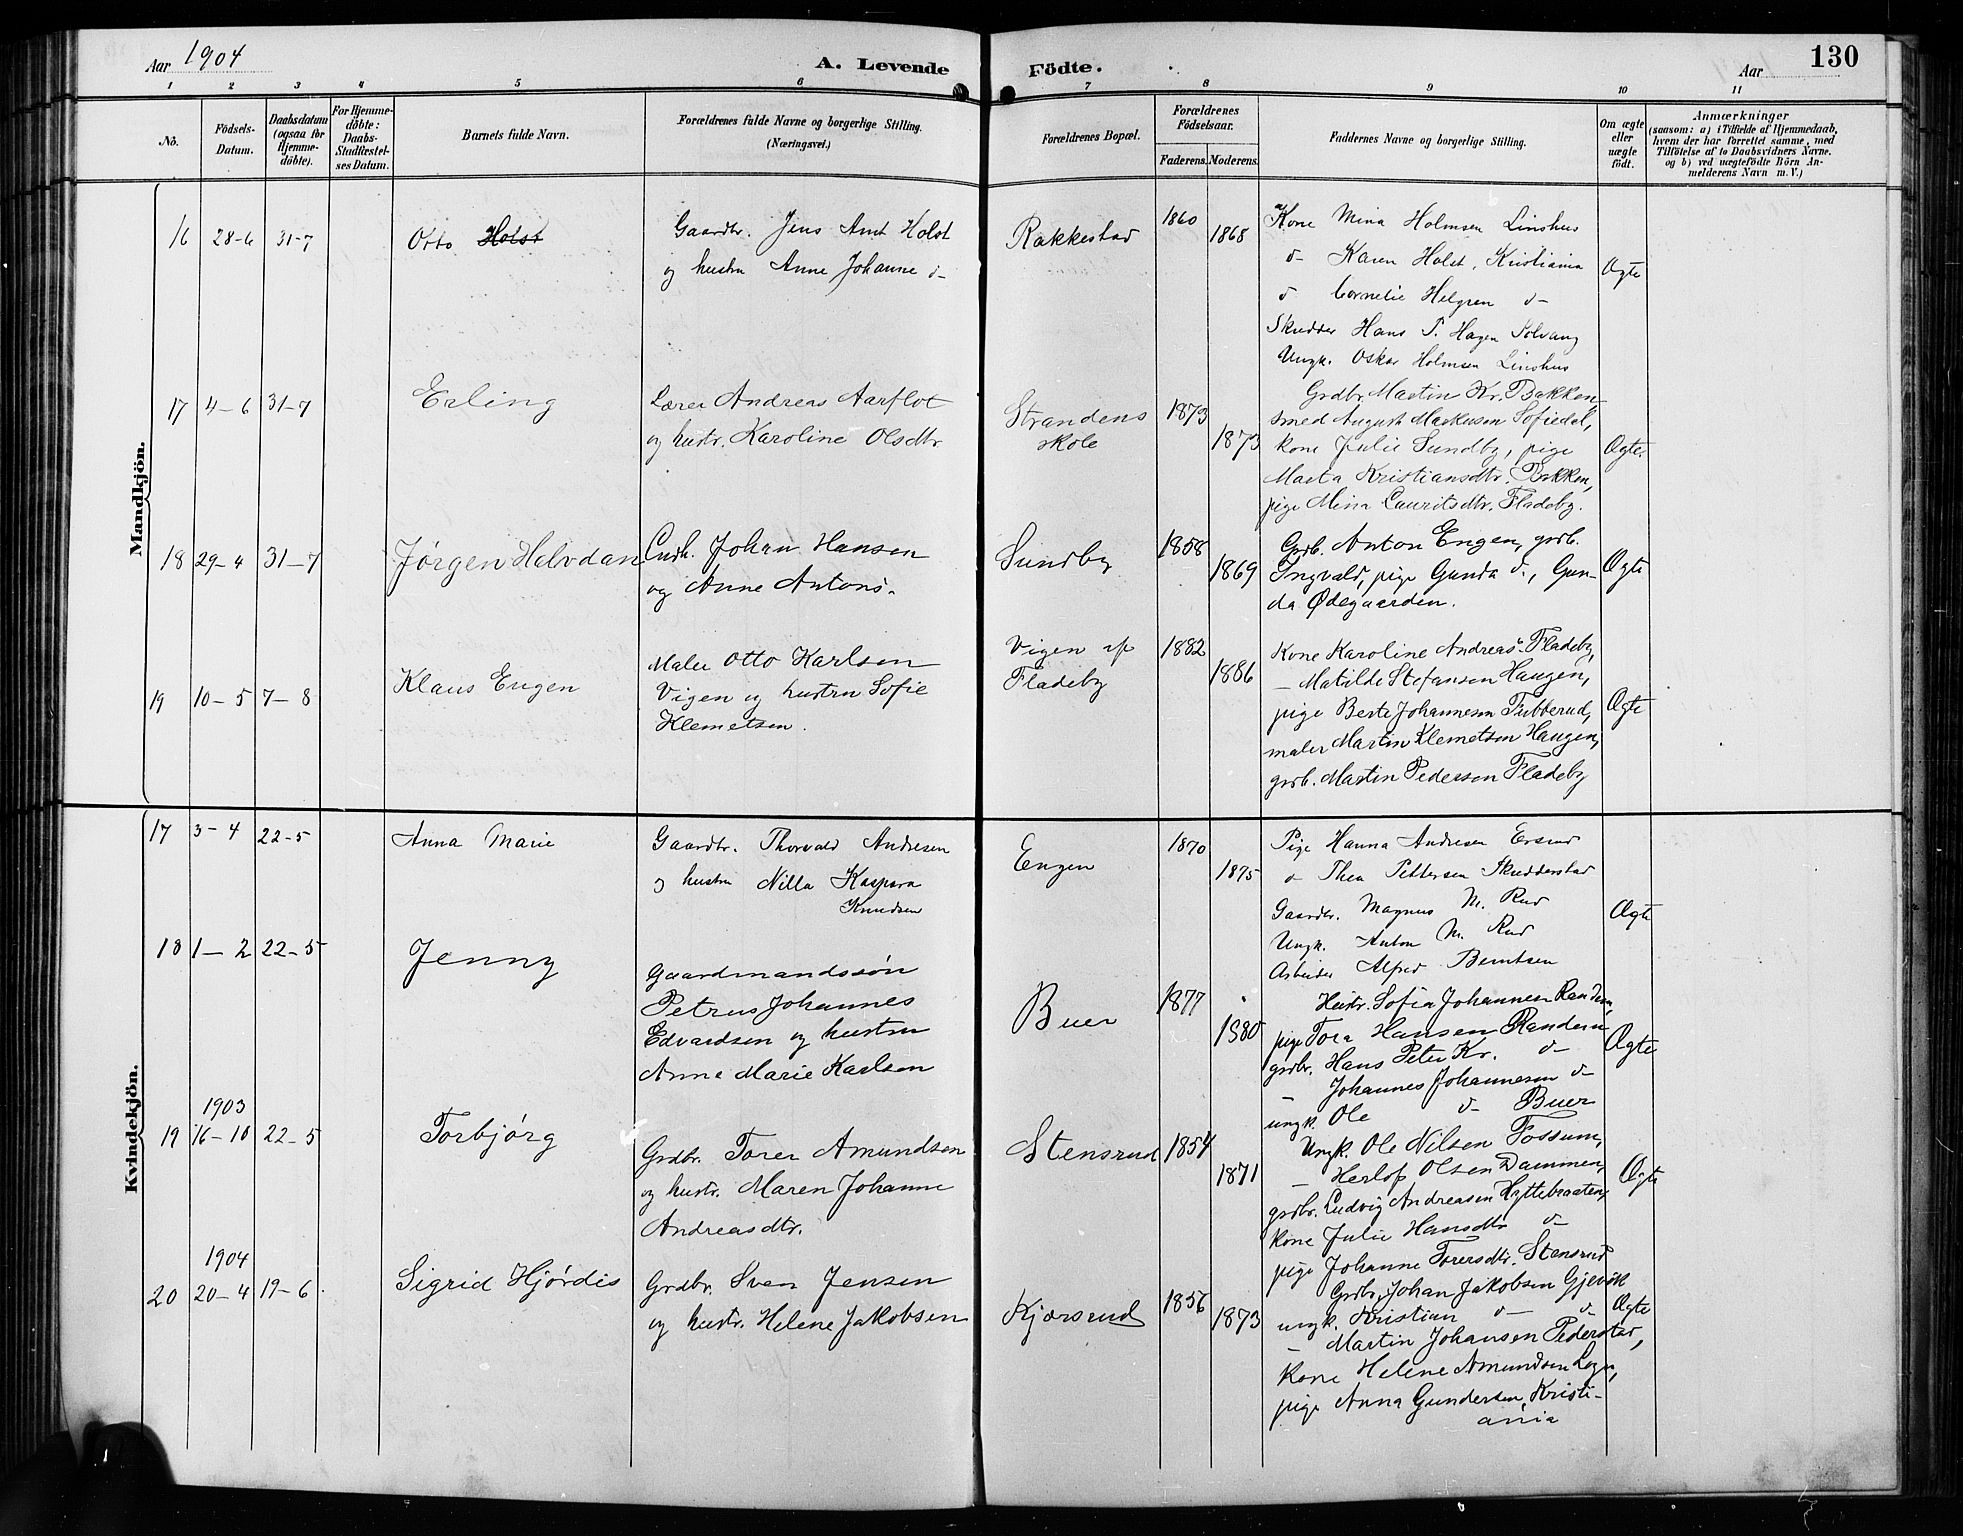 Aar 1904
A. Levende Födte.
Aar
130
1 2 3 4 5 6 7 8 9 10 11
No.
Födsels-Datum.
Daabsdatum (ogsaa for Hjemme-döbte).
For Hjemme-döbte: Daabs-Stadfæstel-ses Datum.
Barnets fulde Navn.
Forældrenes fulde Navne og borgerlige Stilling.
(Næringsvei.)
Forældrenes Bopæl.
Forældrenes Födselsaar.
Faderens. Moderens.
Faddernes Navne og borgerlige Stilling.
Om ægte eller uægte födt.
Anmærkninger
(saasom: a) i Tilfælde af Hjemmedaab, hvem der har forrettet samme, med Tilföielse af to Daabsvidners Navne, og b) ved uægtefödte Börn An-melderens Navn m. V.)
Mandkjön.
16 28-6 31-7 Otto Holst
Gaardbr. Jens Amt Holst
og hustru Anne Johanne d-
Rakkestad 1860 1868
Kone Mina Holmsen Linshus
d- Karen Holst, Kristiania
d Cornelie Helgren d-
Skrædder Hans P. Hagen Solvang
Ungk. Oskar Holmsen Linshus
Ægte
17 4-6 31-7 Erling
Lærer Andreas Aarflot
og hustr. Karoline Olsdtr
Strandens
skole
1873 1873
Grdbr. Martin Kr. Bakken
smed August Markusen Sofiedal,
kone Julie Sundby, pige
Marta Kristiansdtr. Bakken,
pige Mina Lauritsdtr. Fladeby.
Ægte.
18 29-4 31-7 Jørgen Halvdan
Indh. Johan Hansen
og Anne Antons.
Sundby 1858 1869
Grdb. Anton Engen, grdb.
Ingvald, pige Gunda d., Gun-
da Ødegaarden.
Ægte
19 10-5 7-8 Klaus Eugen
Maler Otto Karlsen
Vigen og hustru Sofie
Klemetsen.
Vigen u/
Fladeby
1882 1886
Kone Karoline Andreas. Fladeby,
- Matilde Stefansen Haugen,
pige Berte Johannesen Tubberud,
maler Martin Klemetsen Haugen,
grdb. Martin Pedersen Fladeby
Ægte
Kvindekjön.
17 3-4 22-5 Anna Marie
Gaardbr. Thorvald Andresen
og hustru Nilla Kaspara
Knudsen
Engen 1870 1875
Pige Hanna Andresen Ersrud
d- Thea Pettersen Skredderstad
Gaardbr. Magnus M. Rud
Ungk. Anton M. Rud
Arbeider Alfred Berntsen
Ægte
18 1-2 22-5 Jenny
Gaardmandssøn
Petrus Johannes
Edvardsen og hustru
Anna Marie Karlsen
Buer 1877 1880
Hustr. Sofia Johannesen
pige Tora Hansen
grdbr. Hans Peter Kr. d-
- Johannes Johannesen d-
ungk. Ole d- Buer
Ægte
1903
19 16-10 22-5 Torbjørg
Grdbr. Torer Amundsen
og hustr. Maren Johanne
Andreasdtr.
Stensrud 1854 1871
Ungk. Ole Nilsen Fossum,
- Herlof Olsen Dammen,
grdbr. Ludvig Andreasen Hyttebraaten,
kone Julie Hansdtr d-
pige Johanne Torersdtr. Stensrud
Ægte
1904
20 20-4 19-6 Sigrid Hjørdis
Grdbr. Sven Jensen
og hustr. Helene Jakobsen
Kjærsrud 1856 1873
Grdbr. Johan Jakobsen Gjevik
ungk. Kristian d- d-
- Martin Johansen Pederstad,
kone Helene Amundsen
pige Anna Gundersen, Kristi-
ania
Ægte